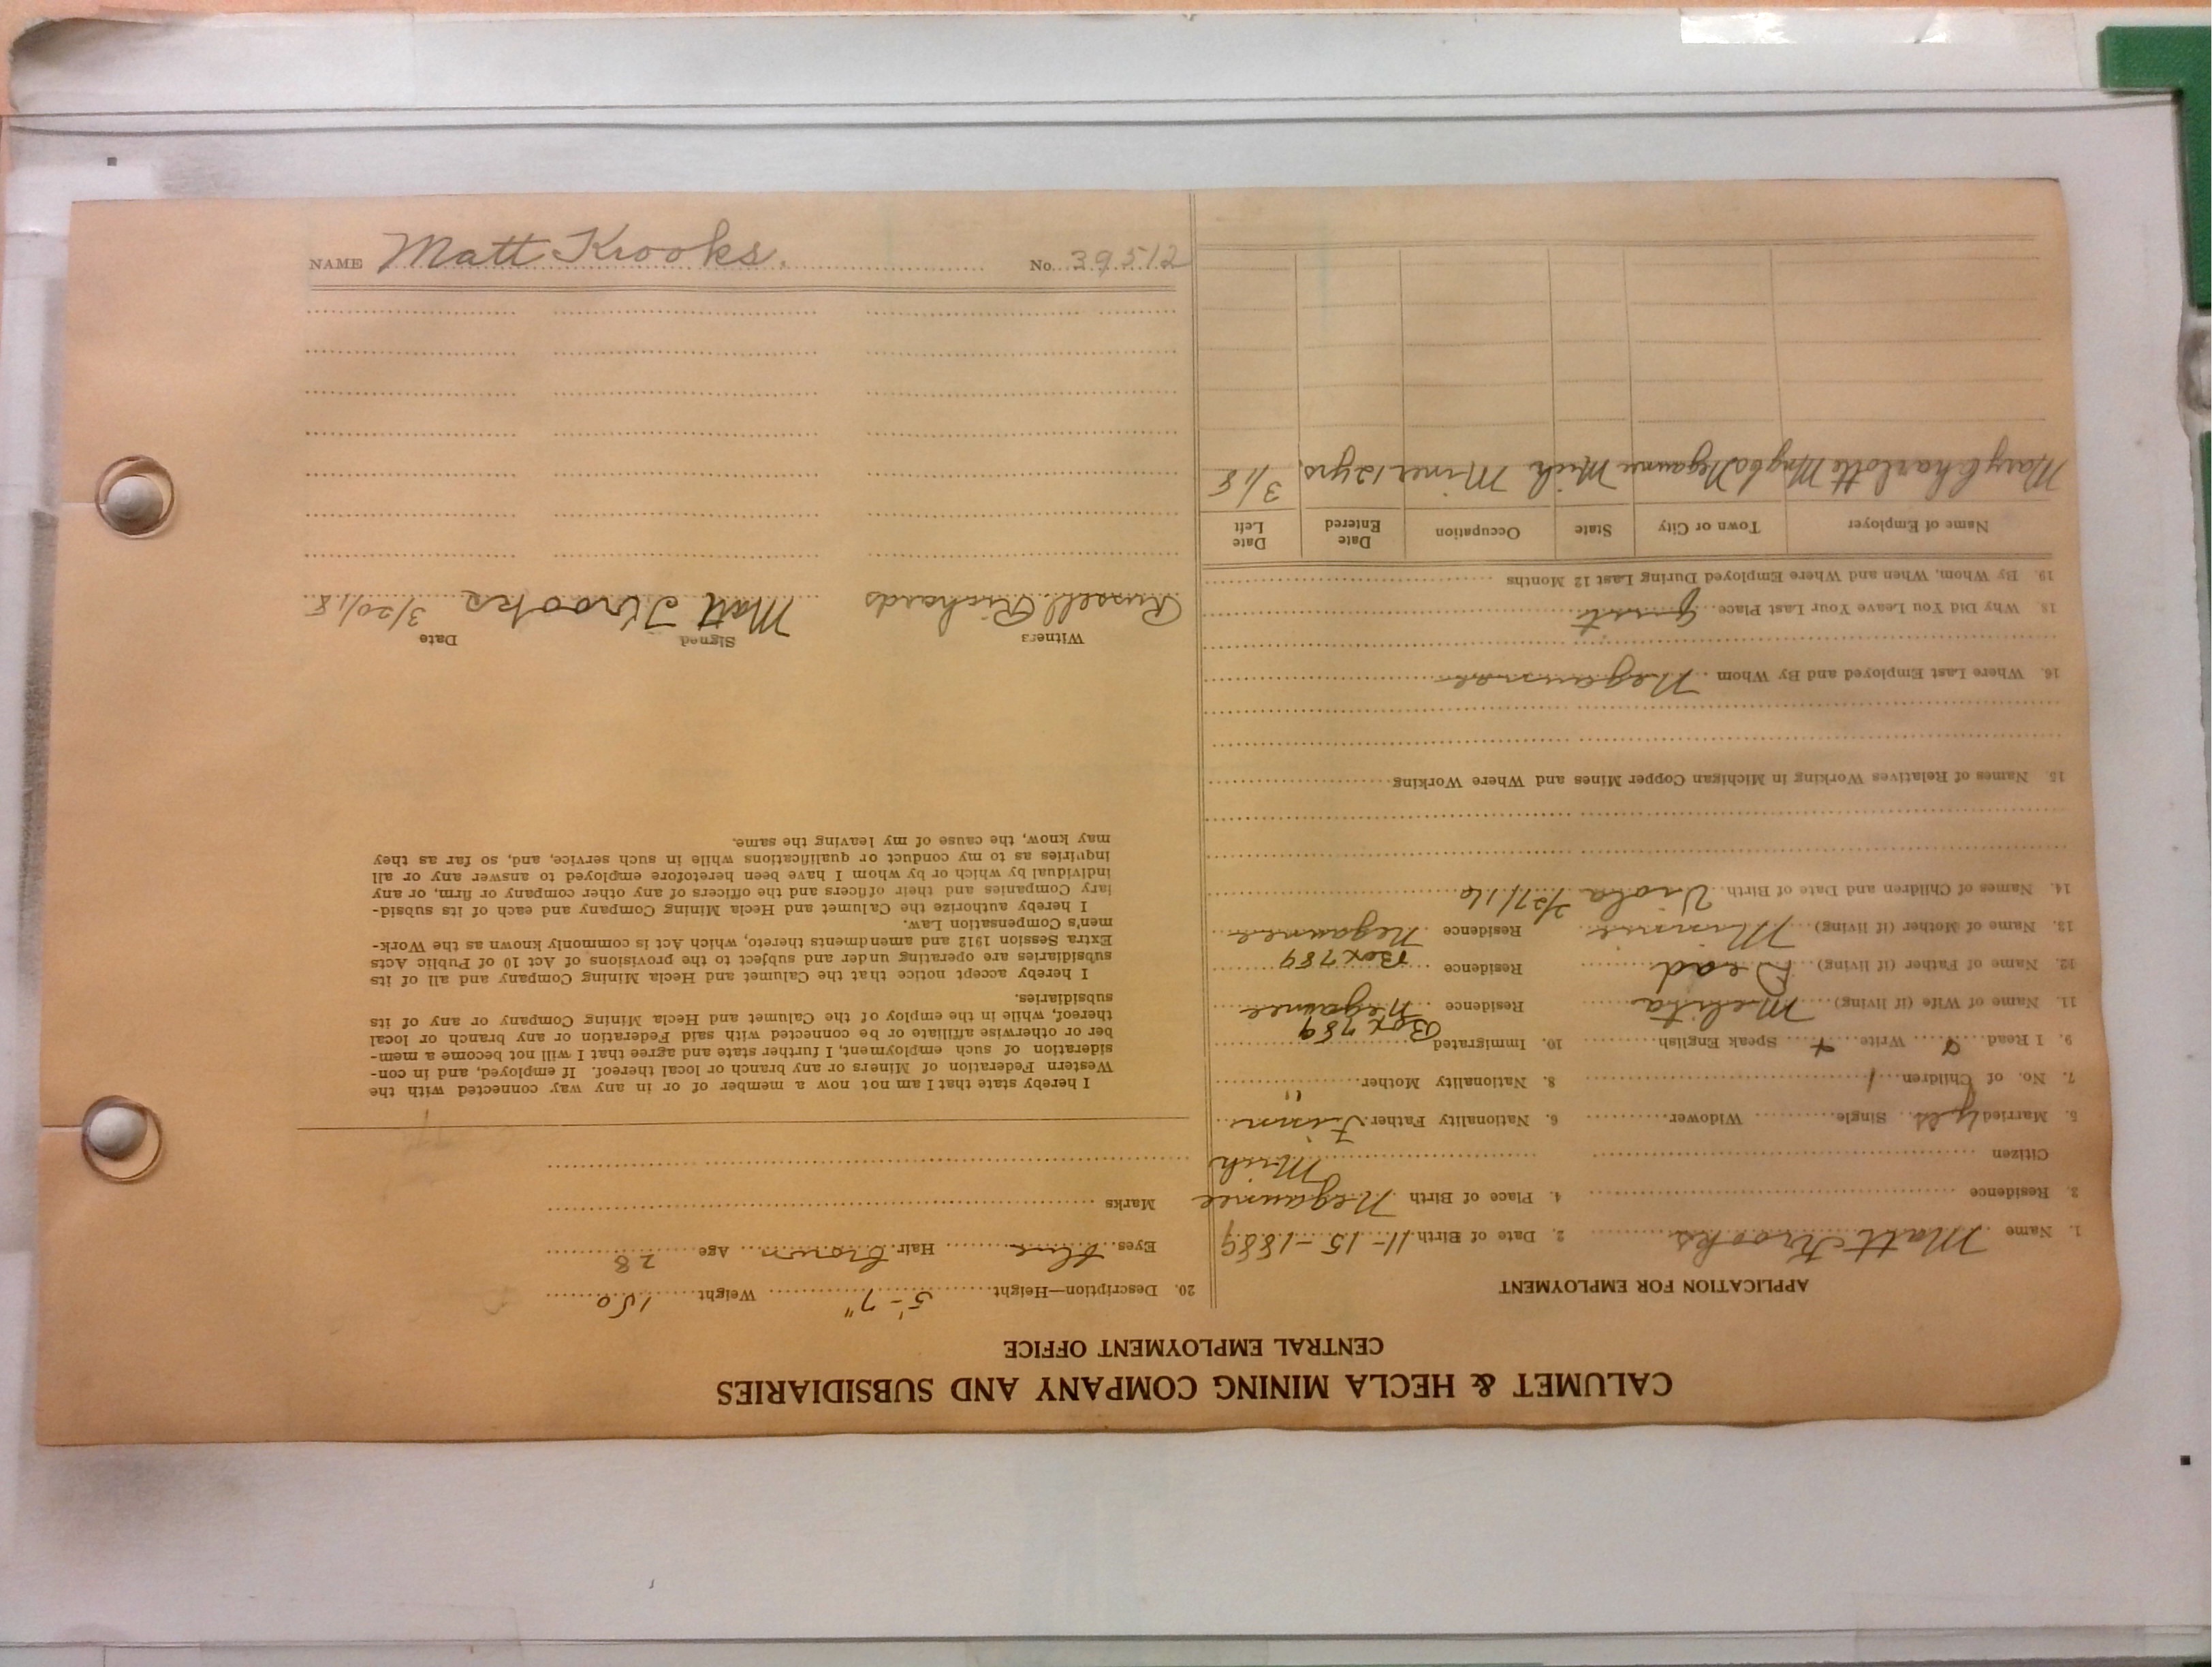 NAME Matt Krooks. No. 39512
CALUMET & HECLA MINING COMPANY AND SUBSIDIARIES
CENTRAL EMPLOYMENT OFFICE
APPLICATION FOR EMPLOYMENT
1. Name Matt Krooks 2. Date of Birth 11-15-1889
3. Residence 4. Place of Birth Negaunee
Citizen Mich
5. Married yes Single Widower 6. Nationality Father Finn
7. No. of Children 1 8. Nationality Mother "
9. I Read Write Speak English 10. Immigrated
Box 789
11. Name of Wife (if living) Melita Residence Negaunee
12. Name of Father (if living) Dead Residence Box 789
13. Name of Mother (if living) Minnie Residence Negaunee
14. Names of Children and Date of Birth. Viola 2/27/16
15. Names of Relatives Working in Michigan Copper Mines and Where Working
16. Where Last Employed and By Whom Negaunee
18. Why Did You Leave Your Last Place quit
19. By Whom, When and Where Employed During Last 12 Months
Name of Employer Town or City State Occupation Date Entered Date Left
Mary Charlotte Mng Co Negaunee Mich Miner 12 yrs. 3/18
20. Description—Height 5'-7" Weight 150
Eyes blue Hair brown Age 28
Marks
I hereby state that I am not now a member of or in any way connected with the
Western Federation of Miners or any branch or local thereof. If employed, and in con-
sideration of such employment, I further state and agree that I will not become a mem-
ber or otherwise affiliate or be connected with said Federation or any branch or local
thereof, while in the employ of the Calumet and Hecla Mining Company or any of its
subsidiaries.
I hereby accept notice that the Calumet and Hecla Mining Company and all of its
subsidiaries are operating under and subject to the provisions of Act 10 of Public Acts
Extra Session 1912 and amendments thereto, which Act is commonly known as the Work-
men's Compensation Law.
I hereby authorize the Calumet and Hecla Mining Company and each of its subsid-
iary Companies and their officers and the officers of any other company or firm, or any
individual by which or by whom I have been heretofore employed to answer any or all
inquiries as to my conduct or qualifications while in such service, and, so far as they
may know, the cause of my leaving the same.
Witness Signed Date
Russell Richards Matt Krooks 3/20/18